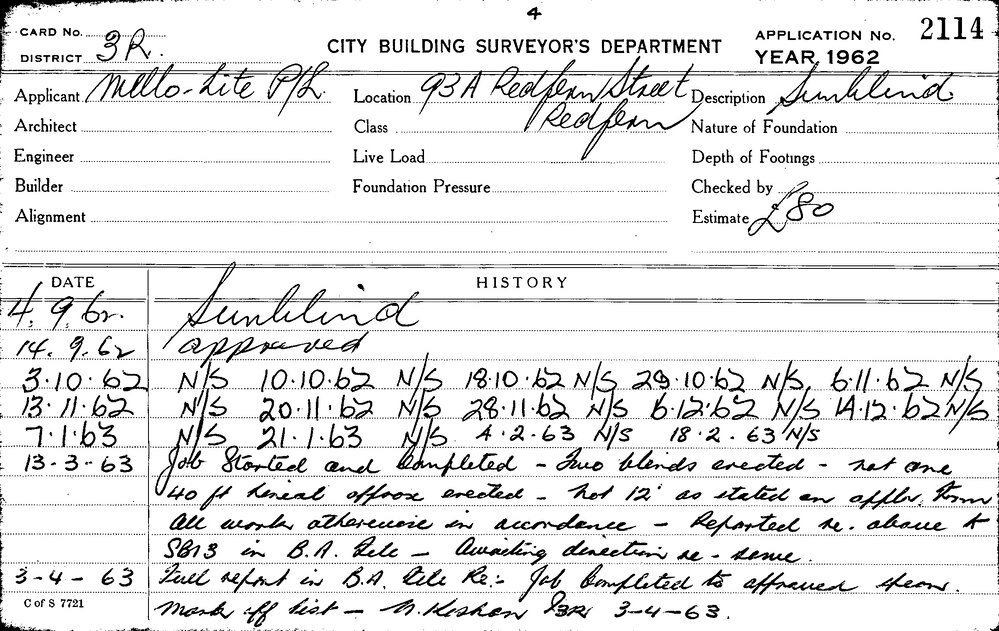 4
CARD No. 3R.
DISTRICT
CITY BUILDING SURVEYOR'S DEPARTMENT
APPLICATION No. 2114
YEAR 1962
Applicant Mello-Lite P/L. Location 93A Redfern Street Redfern Description Sunblind
Architect Class Nature of Foundation
Engineer Live Load Depth of Footings
Builder Foundation Pressure Checked by
Alignment Estimate £80
DATE HISTORY
4.9.62. Sunblind
14.9.62 approved
3·10·62 N/S 10·10·62 N/S 18·10·62 N/S 29·10·62 N/S, 6·11·62 N/S
13·11·62 N/S 20·11·62 N/S 28·11·62 N/S 6·12·62 N/S 14·12·62 N/S
7·1·63 N/S 21·1·63 N/S 4·2·63 N/S 18·2·63 N/S
13-3-63 Job Started and Completed - Two blends erected - not one
40 ft lineal approx erected - not 12' as stated on applic. Form
All works otherwise in accordance - Reported re. above to
SB13 in B.A. File - Awaiting direction re - same.
3-4-63 Full report in B.A. File Re:- Job Completed to approved
Mark off list - 3R 3-4-63.
C of S 7721